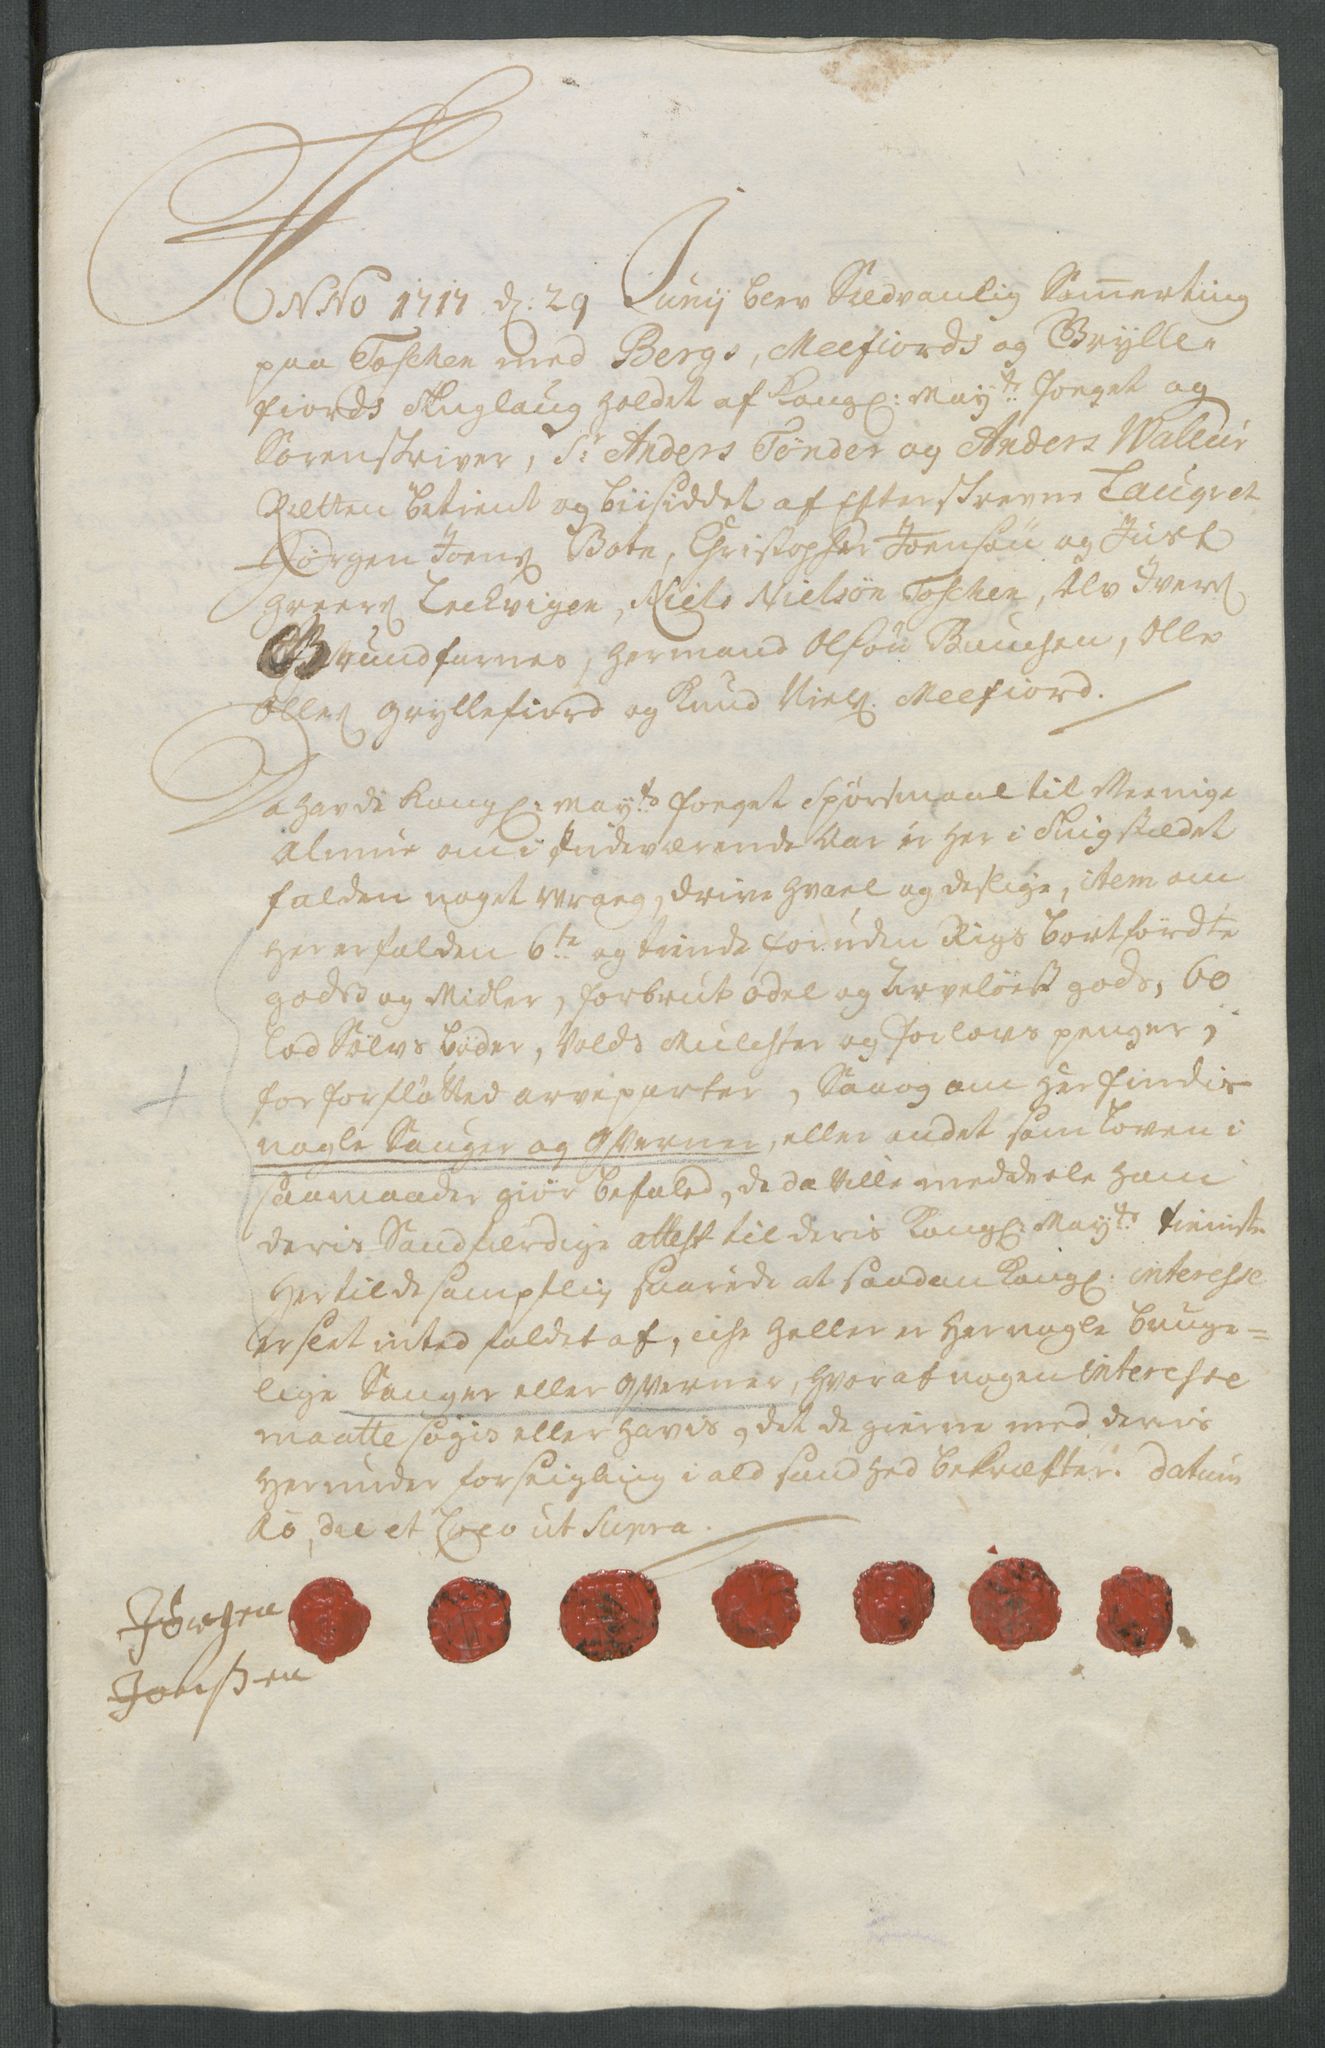 ANNo 1717 d: 29 Junij blev Sædvanlig Sommerting
paa Toschen med Bergs, Meefiords og Grylle-
fiords Tinglaug holdet af Kongl: Mayts: foeget og
Sorenskriver, Sr Anders Tønder og Anders Waleur
Retten betient og biisiddet af Efterskrevne Laugret
Jørgen Joens Botn, Christopher Joensøn og Just
Greers Leikvigen, Niels Nielsøn Toschen, Olv Ivers
Grundfarnes, Hermand Olsøn Bunchen, Olle
Olles gryllefiord og Knud Niels. Meefiord.
Da havde Kongl: Mayts foeget Spørsmaal til Meenige
Almue om i Indeværende Aar er her i Tingstædet
falden noget wrag, drive hvael og deslige, item om
her er falden 6te og tiende for uden Rigs bortførdte
gods og Midler, forbrut odel og Arveløest gods, 60
lod Sølvs bøder, Volds Mulchter og forlovs penger,
for forfløtted arveparter, Saa og om her findis
nogle Sauger og qverner, eller andet som Loven i
saamaader giør befaled, de da ville meddeele ham
deris Sandfærdige attest til deris Kongl: Mayts: tieniste
Hertil de samptlig svarede at saadan Kongl: interesse
er slet inted faldet af, eihe heller er her nogle bruge=
lige Sauger eller qverner, hvor af nogen interesse
maatte søgis eller havis, det de gierne med deris
herunder forseigling i ald sandhed bekræfter. datum
Ao, die et Loco ut Supra.
Jørgen
Jonssen